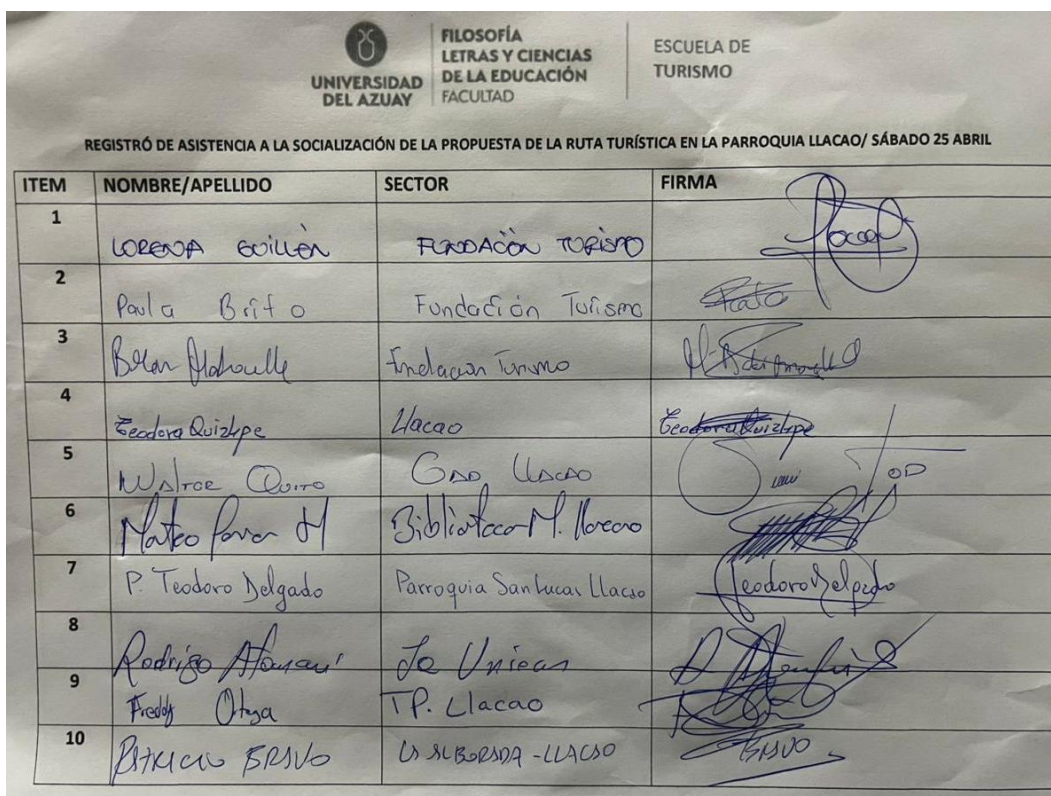 UNIVERSIDAD DEL AZUAY
FILOSOFÍA
LETRAS Y CIENCIAS
DE LA EDUCACIÓN
FACULTAD
ESCUELA DE
TURISMO
REGISTRÓ DE ASISTENCIA A LA SOCIALIZACIÓN DE LA PROPUESTA DE LA RUTA TURÍSTICA EN LA PARROQUIA LLACAO/ SÁBADO 25 ABRIL
ITEM NOMBRE/APELLIDO SECTOR FIRMA
1 LORENA GUILLÉN FUNDACIÓN TURISMO
2 Paula Brito Fundación Turismo
3 Fundacion Turismo
4 Teodora Quizhpe Llacao Teodora Quizhpe
5 WALTER QUITO GAD LLACAO
6 Mateo Biblioteca M. Llacao
7 P. Teodoro Delgado Parroquia San Lucas Llacao Teodoro Delgado
8 Rodrigo La Unión
9 Freddy Ortega TP. Llacao
10 PATRICIO BRAVO LA ALBORADA - LLACAO BRAVO